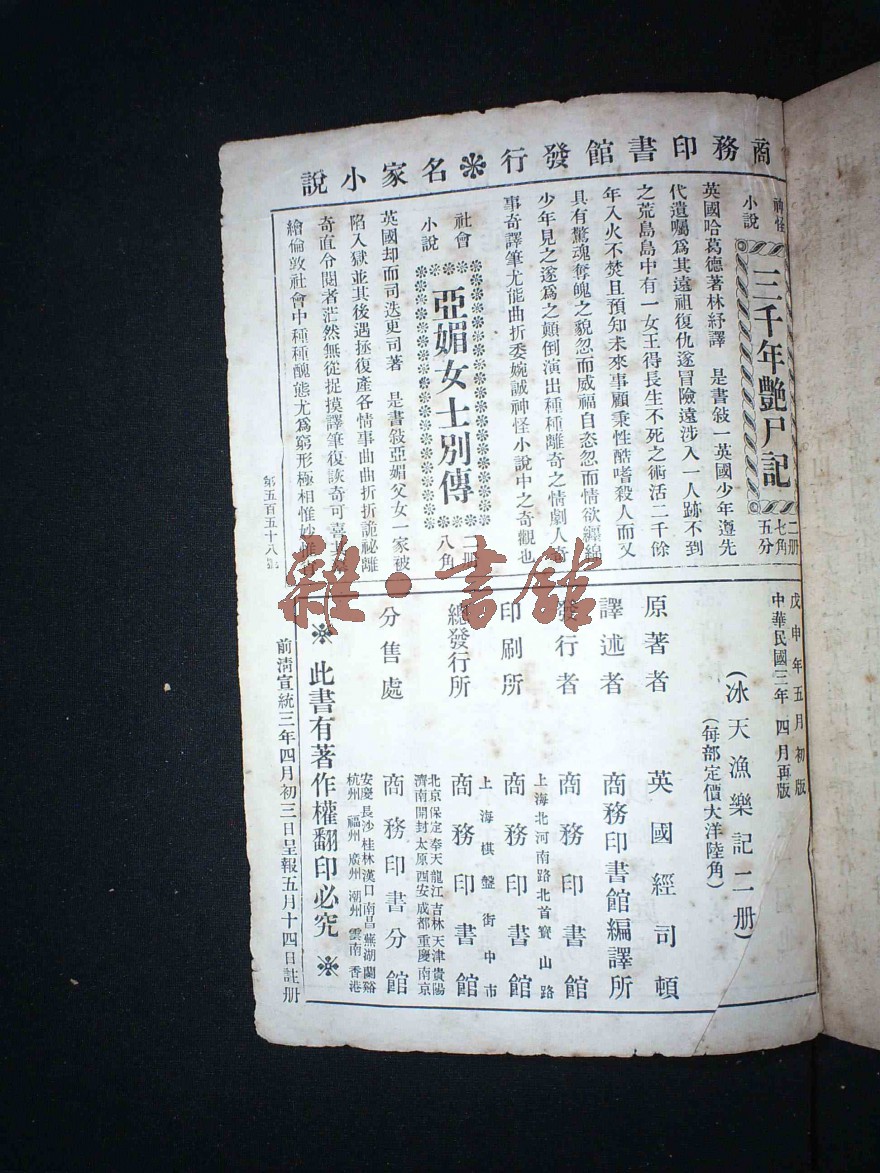 商務印書館發行❋名家小說
神怪小說
三千年艷尸記
二册七角五分
英國哈葛德著林紓譯　是書敍一英國少年遵先
代遺囑爲其遠祖復仇遂冒險遠涉入一人跡不到
之荒島島中有一女王得長生不死之術活二千餘
年入火不焚且預知未來事顧秉性酷嗜殺人而又
具有驚魂奪魄之貌忽而威福自恣忽而情欲纏綿
少年見之遂爲之顛倒演出種種離奇之情劇人奇
事奇譯筆尤能曲折委婉誠神怪小說中之奇觀也
社會小說
亞媚女士別傳
二册八角
英國却而司迭更司著　是書敍亞媚父女一家被
陷入獄並其後遇拯復產各情事曲曲折折詭祕離
奇直令閱者茫然無從捉摸譯筆復詼奇可喜其
繪倫敦社會中種種醜態尤爲窮形極相惟妙惟
第五百五十八
戊申年五月初版
中華民國三年四月再版
(冰天漁樂記二册)
(每部定價大洋陸角)
原著者　英國經司頓
譯述者　商務印書館編譯所
發行者　商務印書館
上海北河南路北首寶山路
印刷所　商務印書館
上海棋盤街中市
總發行所　商務印書館
北京保定奉天龍江吉林天津貴陽
濟南開封太原西安成都重慶南京
分售處　商務印書分館
安慶長沙桂林漢口南昌蕪湖蘭谿
杭州福州廣州潮州雲南香港
❋此書有著作權翻印必究❋
前清宣統三年四月初三日呈報五月十四日註册
雜·書館